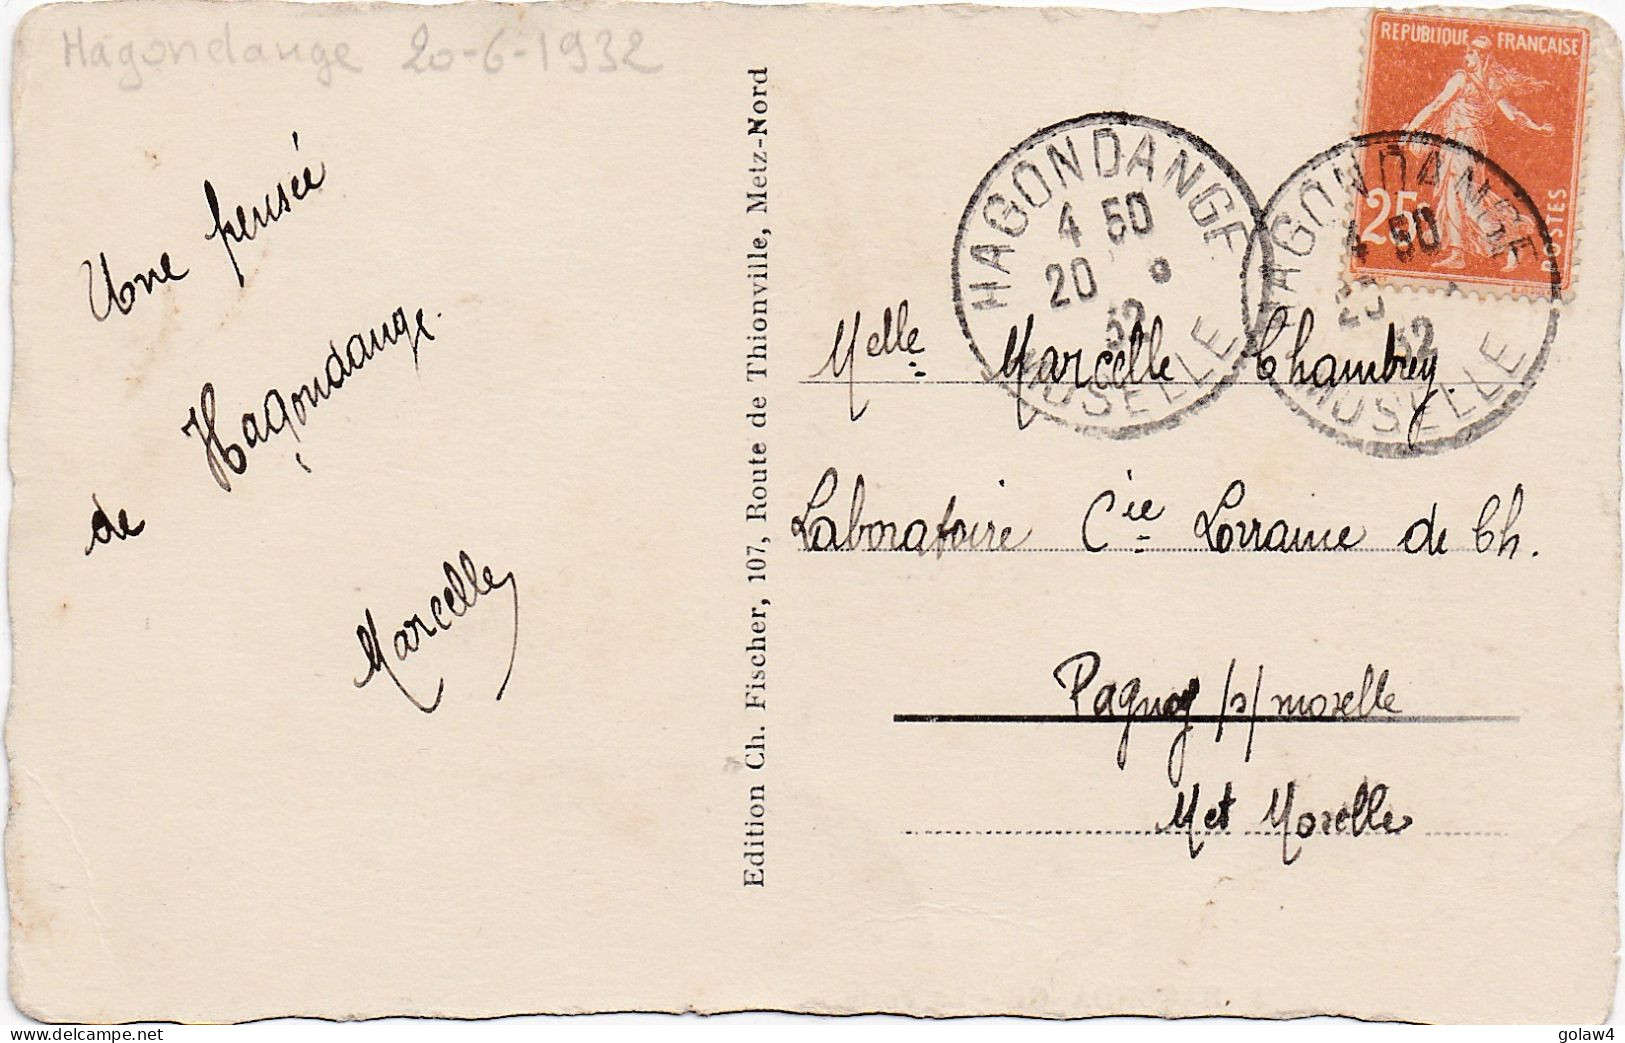 Hagondange 20-6-1932
Une pensée
de Hagondange.
Marcelle
Edition Ch. Fischer, 107, Route de Thionville, Metz-Nord
REPUBLIQUE FRANÇAISE
25c
POSTES
HAGONDANGE
4 50
20
32
MOSELLE
HAGONDANGE
4 50
20
32
MOSELLE
Melle Marcelle Chambrey.
Laboratoire Cie Lorraine de Ch.
Pagny /s/ moselle
Met Moselle
delcampe.net
golaw4